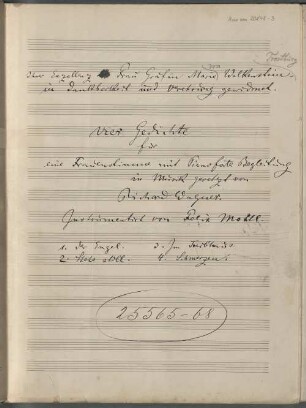 Ihrer Excellenz Frau Gräfin Marie von Wolkenstein-
Trostburg
in Dankbarkeit und Verehrung gewidmet.
Vier Gedichte
für
eine Frauenstimme mit Pianoforte Begleitung
in Musik gesetzt von
Richard Wagner.
Instrumentiert von Felix Mottl.
1. Der Engel. 3. Im Treibhaus
2. Stehe still. 4. Schmerzen.
25565-68